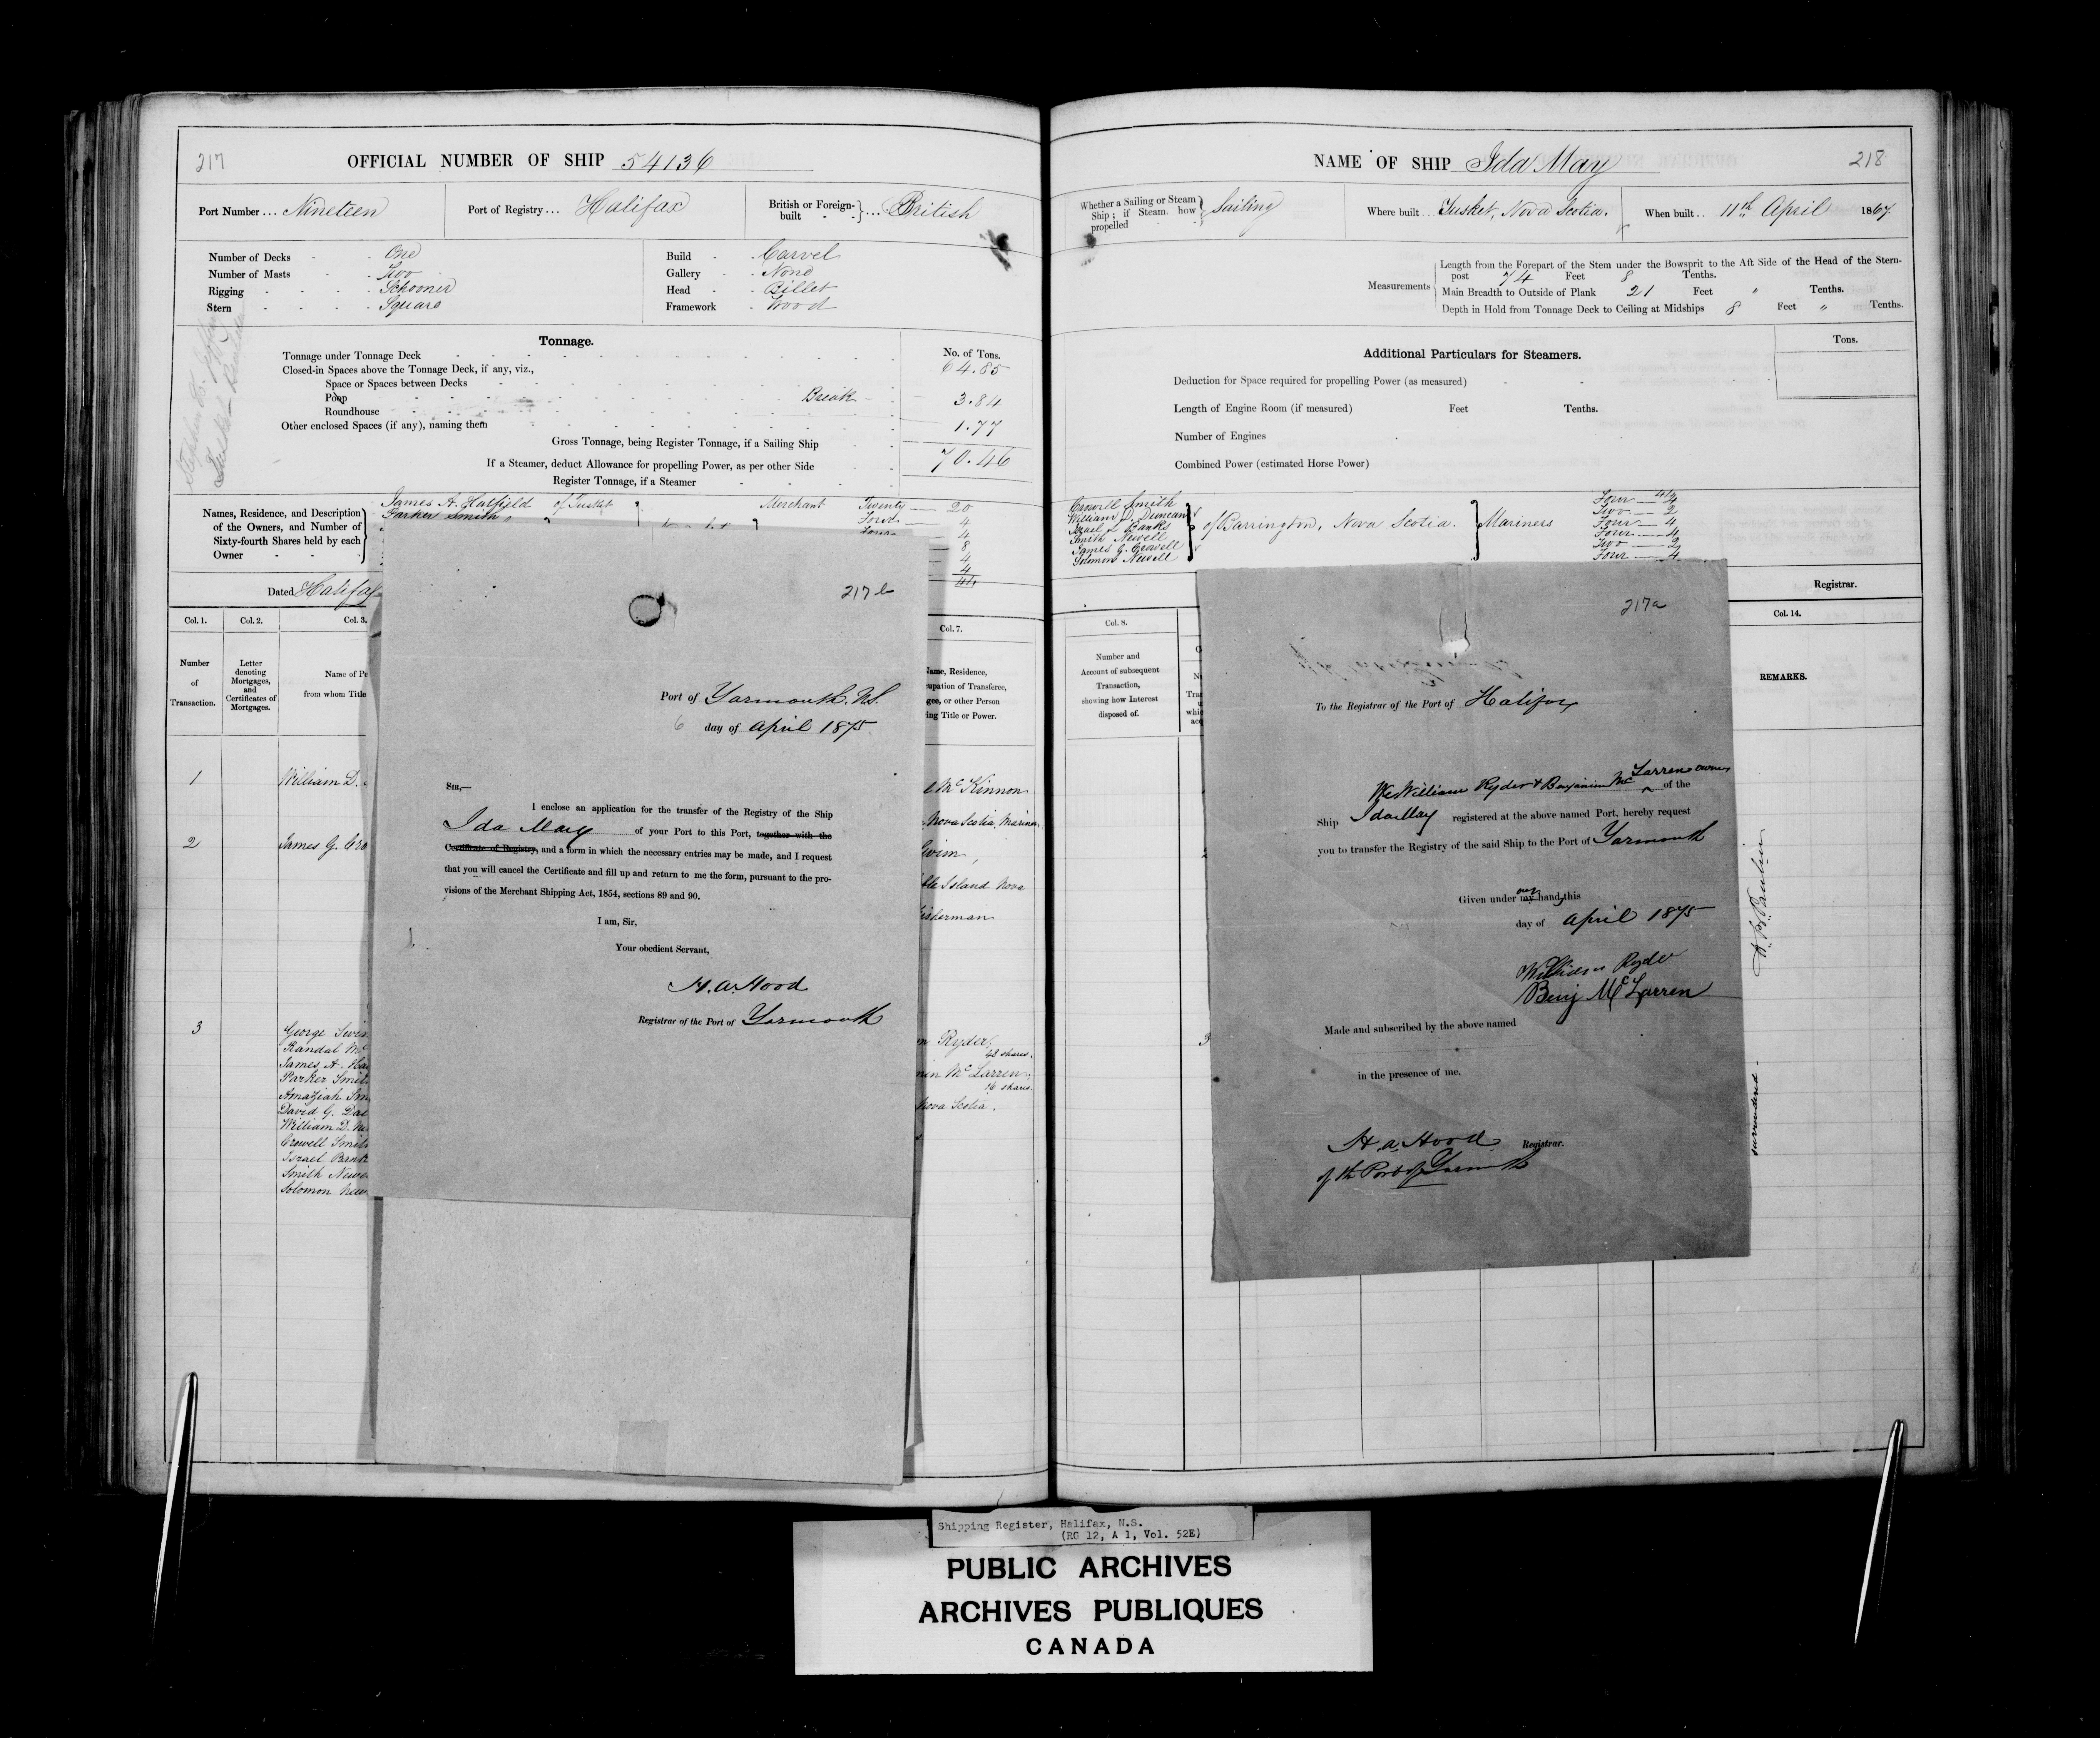 217
OFFICIAL NUMBER OF SHIP 54136
Port Number... Nineteen
Port of Registry... Halifax
British or Foreign-built ... British
Number of Decks - One
Number of Masts - Two
Rigging - Schooner
Stern - Square
Build - Carvel
Gallery - None
Head - Billet
Framework - Wood
Tonnage.
No. of Tons.
Tonnage under Tonnage Deck 64.85
Closed-in Spaces above the Tonnage Deck, if any, viz.,
Space or Spaces between Decks
Poop Break 3.84
Roundhouse
Other enclosed Spaces (if any), naming them 1.77
Gross Tonnage, being Register Tonnage, if a Sailing Ship 70.46
If a Steamer, deduct Allowance for propelling Power, as per other Side
Register Tonnage, if a Steamer
Names, Residence, and Description of the Owners, and Number of Sixty-fourth Shares held by each Owner
James A. Hatfield of Tusket Merchant Twenty — 20
Parker Smith Four — 4
4
8
4
4
44
Dated Halifax
Col. 1.
Col. 2.
Col. 3.
Col. 7.
Number of Transaction.
Letter denoting Mortgages, and Certificates of Mortgages.
Name of Pe
from whom Title
Name, Residence,
upation of Transferee,
gee, or other Person
ing Title or Power.
1 William D.
Mc Kinnon
Nova Scotia, Mariner
2 James G. Cro
Swim,
ble Island Nova
isherman
3
George Swim
Randal Mc
James A. Ha
Parker Smit
Amaziah Sm
David G. Da
William D. Mc
Crowell Smit
Israel Bank
Smith Newe
Solomon New
Ryder,
48 shares.
min McLarren,
16 shares.
Nova Scotia.
217 b
Port of Yarmouth. N.S.
6 day of April 1875
Sir,—
I enclose an application for the transfer of the Registry of the Ship
Ida May of your Port to this Port, together with the
Certificate of Registry, and a form in which the necessary entries may be made, and I request
that you will cancel the Certificate and fill up and return to me the form, pursuant to the pro-
visions of the Merchant Shipping Act, 1854, sections 89 and 90.
I am, Sir,
Your obedient Servant,
H. A. Hood
Registrar of the Port of Yarmouth
NAME OF SHIP Ida May
218
Whether a Sailing or Steam Ship; if Steam how propelled Sailing
Where built... Tusket, Nova Scotia.
When built.. 11th April 1867
Measurements
Length from the Forepart of the Stem under the Bowsprit to the Aft Side of the Head of the Stern-
post 74 Feet 8 Tenths.
Main Breadth to Outside of Plank 21 Feet " Tenths.
Depth in Hold from Tonnage Deck to Ceiling at Midships 8 Feet " Tenths.
Additional Particulars for Steamers.
Tons.
Deduction for Space required for propelling Power (as measured)
Length of Engine Room (if measured) Feet Tenths.
Number of Engines
Combined Power (estimated Horse Power)
44
Crowell Smith Four — 4
William D. Duncan Two — 2
Israel L. Banks Four — 4
Smith Newell Four — 4
James G. Crowell Two — 2
Solomon Newell Four — 4
of Barrington, Nova Scotia. Mariners
Registrar.
Col. 8.
Col. 14.
Number and
Account of subsequent
Transaction,
showing how Interest
disposed of.
REMARKS.
3
surrendered -
217a
To the Registrar of the Port of Halifax
We William Ryder & Benjamin McLarren owners of the
Ship Ida May registered at the above named Port, hereby request
you to transfer the Registry of the said Ship to the Port of Yarmouth
Given under my our hand, this
day of April 1875
William Ryder
Benj McLarren
Made and subscribed by the above named
in the presence of me.
H. A. Hood Registrar.
of the Port of Yarmouth
Shipping Register, Halifax, N.S.
(RG 12, A 1, Vol. 52E)
PUBLIC ARCHIVES
ARCHIVES PUBLIQUES
CANADA